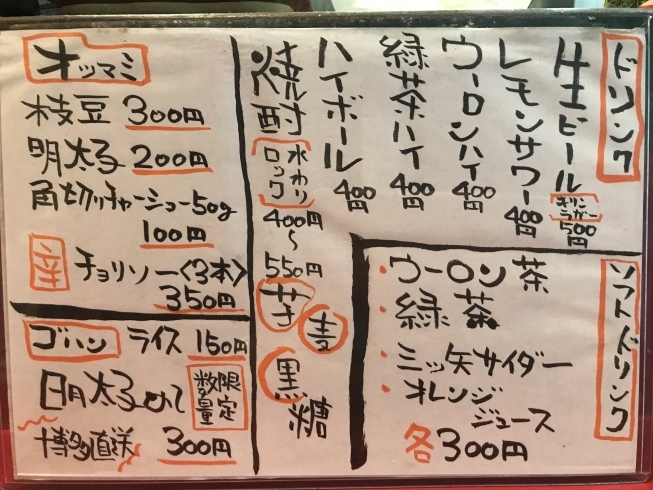 ドリンク
生ビール
キリン
ラガー
500円
レモンサワー 400円
ウーロンハイ 400円
緑茶ハイ 400円
ハイボール 400円
焼酎
水わり
ロック
400円
〜
550円
芋
麦
黒糖
ソフトドリンク
・ウーロン茶
・緑茶
・三ッ矢サイダー
・オレンジ
ジュース
各300円
オツマミ
枝豆 300円
明太子 200円
角切りチャーシュー50g
100円
辛 チョリソー〈3本〉
350円
ゴハン ライス 150円
明太子めし
数量限定
博多直送 300円